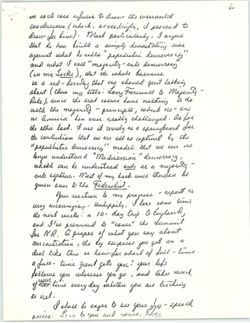 in each case refuses to draw the warranted
conclusions (which, accordingly, I proceed to
draw for him). Most particularly, I argue
that he has built a simply devastating case
against what I call "populistic democracy"
and what I call "majority-rule democracy"
(in my Locke), that the whole business
is a red-herring that we should quit talking
about (thus my title: Long Farewell to Majority-
Rule), since the real issue has nothing to do
with the majority-principle, which no-one
in America has ever really challenged. So far
the other book. I use it mainly as a springboard for
the contention that we are all so captured by the
"populistic democracy" model that we can no
longer understand "Madisonian" democracy,
which can be understood only as a majority-
rule system. Most of my book will therefore be
given over to the Federalist.
Your reaction to my progress-report is
very encouraging. Unhappily, I lose some time
the next weeks: a 10-day trip to England,
and I've promised to "cover" the Summit
for NR. I forgot what you say about
concentration; the big surprise you get on a
deal like this is how far short of full-time
a full-time grant gets you: your life
follows you wherever you go, and takes much
of your time every day whether you are teaching
or not.
I shall be eager to see your speech
piece. Love to you and yours,